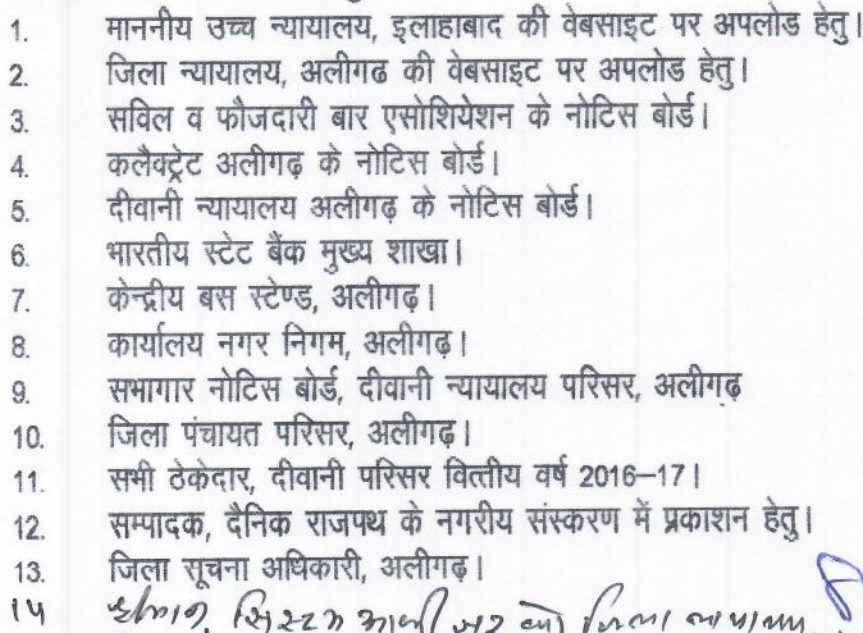 1. माननीय उच्च न्यायालय, इलाहाबाद की वेबसाइट पर अपलोड हेतु।
2. जिला न्यायालय, अलीगढ की वेबसाइट पर अपलोड हेतु।
3. सविल व फौजदारी बार एसोशियेशन के नोटिस बोर्ड।
4. कलैक्ट्रेट अलीगढ़ के नोटिस बोर्ड।
5. दीवानी न्यायालय अलीगढ़ के नोटिस बोर्ड।
6. भारतीय स्टेट बैंक मुख्य शाखा।
7. केन्द्रीय बस स्टेण्ड, अलीगढ़।
8. कार्यालय नगर निगम, अलीगढ़।
9. सभागार नोटिस बोर्ड, दीवानी न्यायालय परिसर, अलीगढ़
10. जिला पंचायत परिसर, अलीगढ़।
11. सभी ठेकेदार, दीवानी परिसर वित्तीय वर्ष 2016–17।
12. सम्पादक, दैनिक राजपथ के नगरीय संस्करण में प्रकाशन हेतु।
13. जिला सूचना अधिकारी, अलीगढ़।
14 सिस्टम को जिला